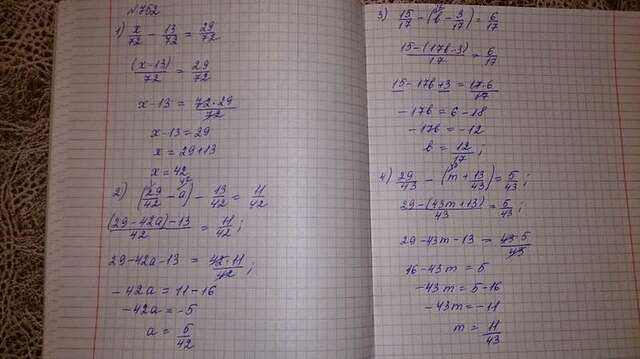 №752
1) x/72 - 13/72 = 29/72
(x-13)/72 = 29/72
x-13 = 72·29/72
x-13 = 29
x = 29+13
x = 42
2) (29/42 - a) - 13/42 = 11/42
(29-42a)-13/42 = 11/42;
29-42a-13 = 42·11/42;
-42a = 11-16
-42a = -5
a = 5/42
3) 15/17 - (b - 3/17) = 6/17
15-(17b-3)/17 = 6/17
15-17b+3 = 17·6/17
-17b = 6-18
-17b = -12
b = 12/17;
4) 29/43 - (m + 13/43) = 5/43;
29-(43m+13)/43 = 5/43;
29-43m-13 = 43·5/43
16-43m = 5
-43m = 5-16
-43m = -11
m = 11/43